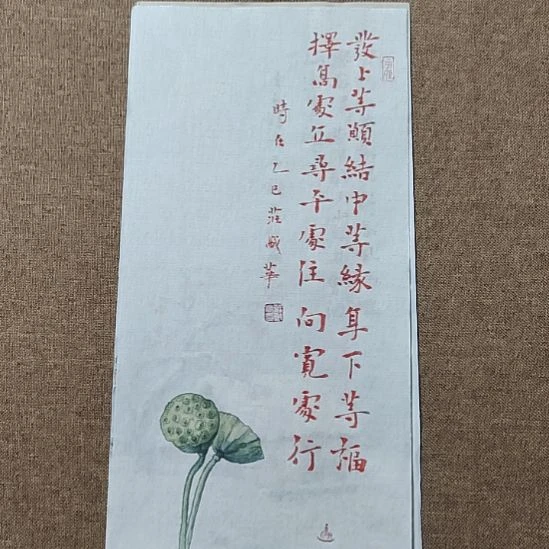 發上等願結中等緣享下等福
擇高處立尋平處住向寬處行
時在乙巳莊華